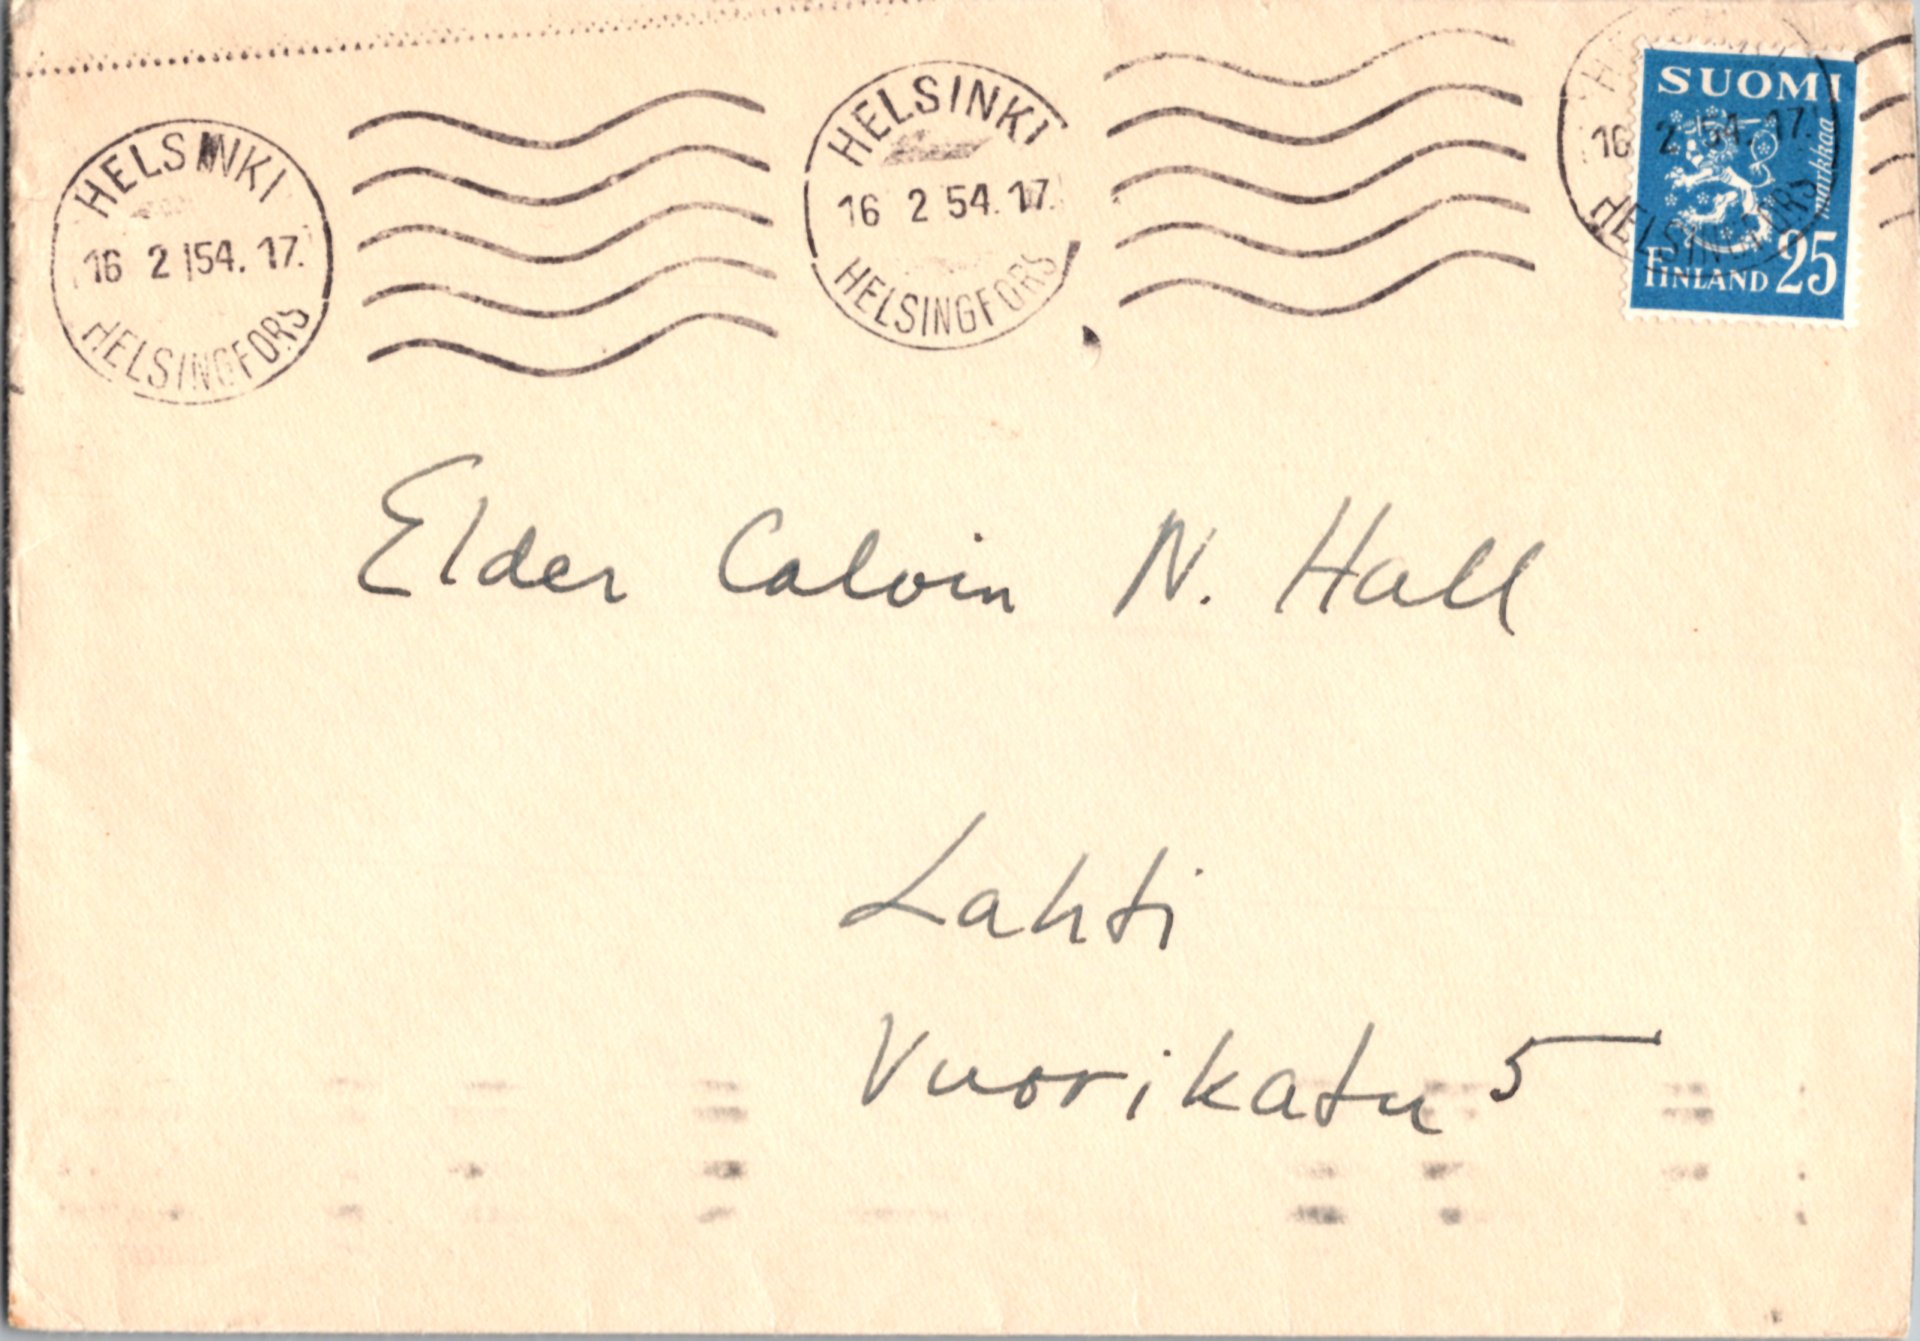 HELSINKI
16 2 54. 17.
HELSINGFORS
HELSINKI
16 2 54. 17.
HELSINGFORS
16 2 54. 17.
HELSINGFORS
SUOMI
markkaa
FINLAND 25
Elder Calvin N. Hall
Lahti
Vuorikatu 5